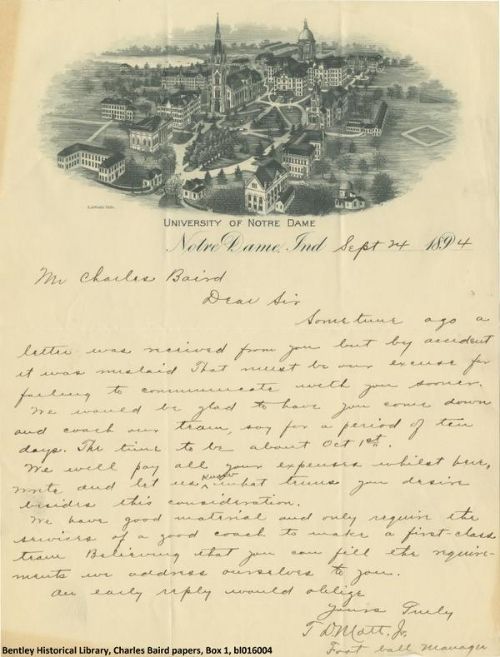 UNIVERSITY OF NOTRE DAME
Notre Dame, Ind Sept 24 1894
Mr Charles Baird
Dear Sir
Sometime ago a
letter was received from you but by accident
it was mislaid That must be our excuse for
failing to communicate with you sooner.
We would be glad to have you come down
and coach our team, say for a period of ten
days. The time to be about Oct 1st.
We will pay all your expenses whilst here,
Write and let us know what terms you desire
besides this consideration.
We have good material and only require the
services of a good coach to make a first-class
team Believing that you can fill the require-
ments we address ourselves to you.
An early reply would oblige
Yours Truly
T D Mott. Jr.
Foot ball Manager
Bentley Historical Library, Charles Baird papers, Box 1, bl016004